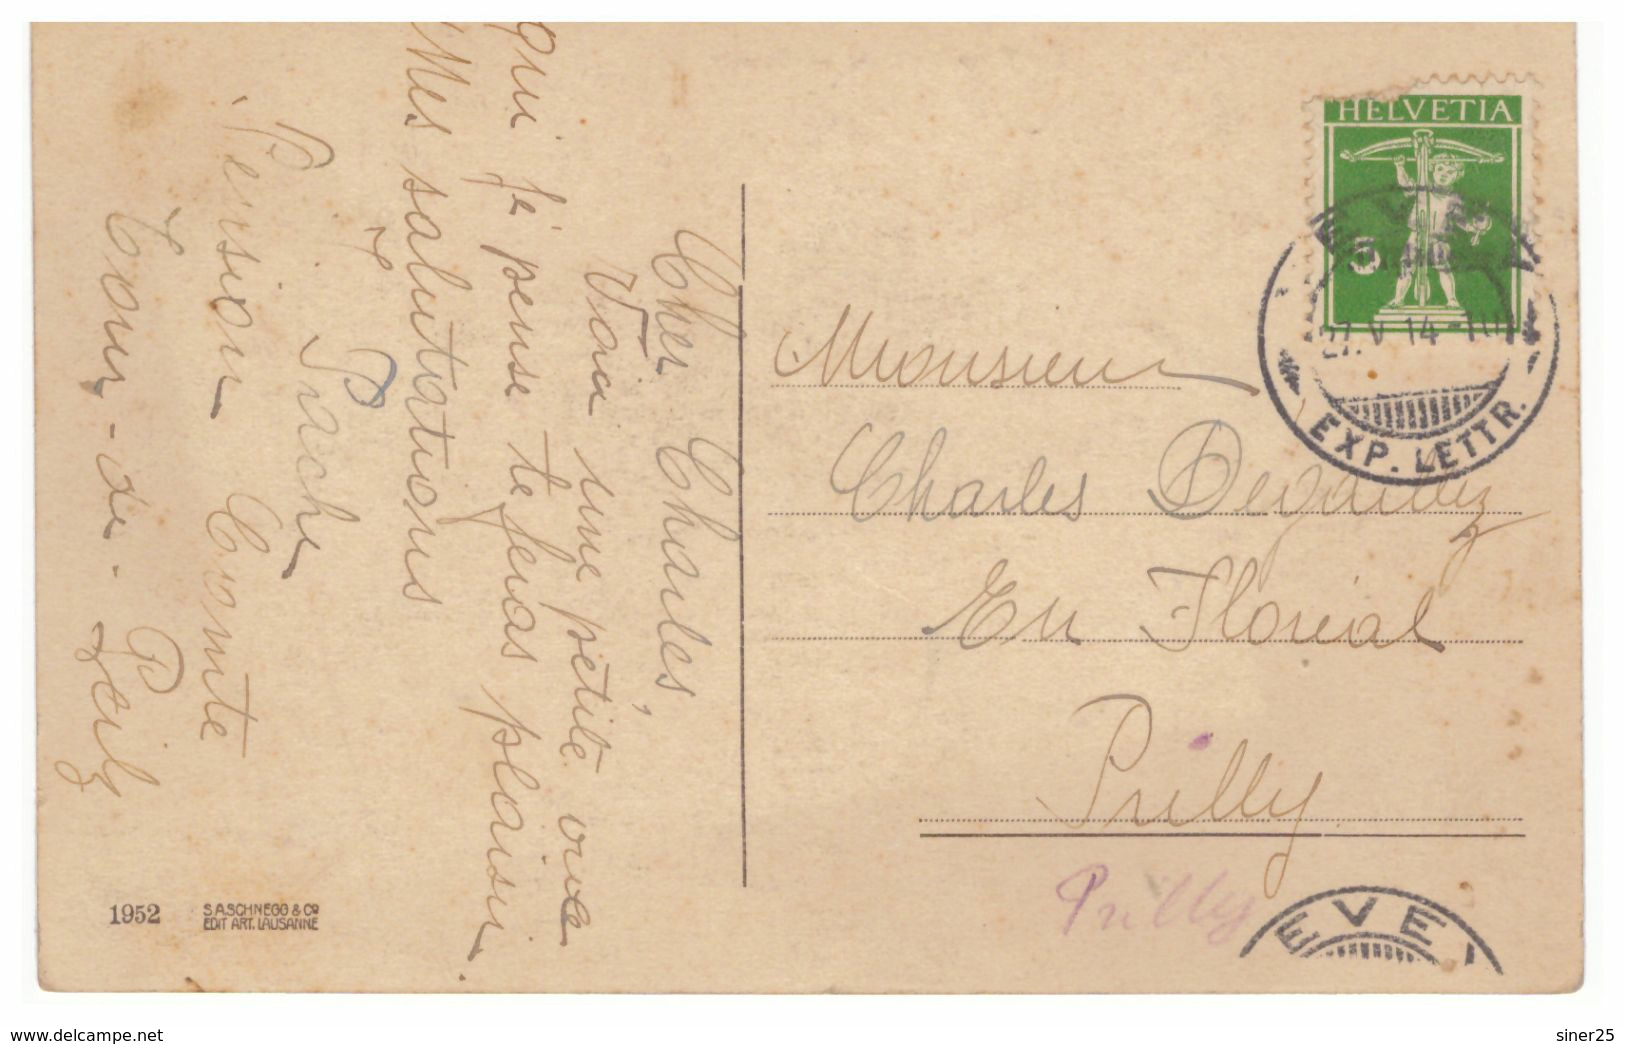 Cher Charles,
Voici une petite vue
qui je pense te feras plaisir.
Mes salutations
P. Pache
Pension Comte
Tour-de-Peilz
HELVETIA
5
VEVEY
27. V. 14 - 10
EXP. LETTR.
Monsieur
Charles
En Floréal
Prilly
Prilly
VEVEY
1952
S.A. SCHNEGG & Co
EDIT ART. LAUSANNE
delcampe.net
siner25